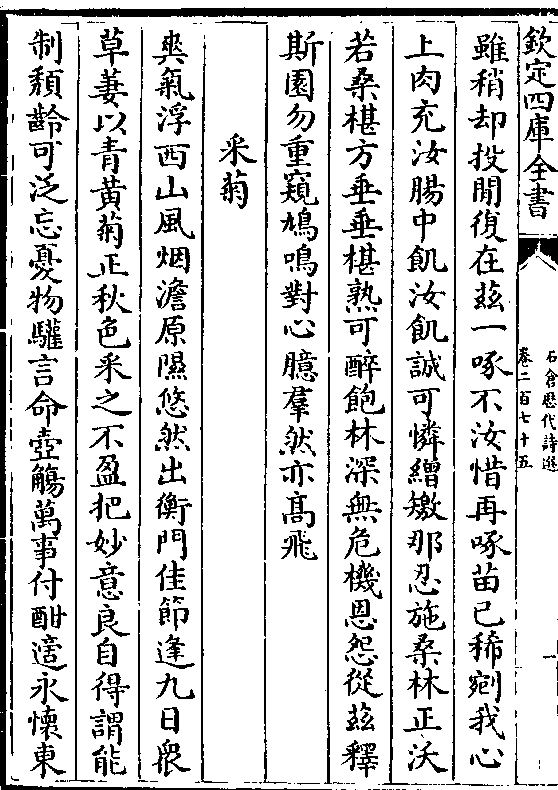 欽定四庫全書
石倉歷代詩選
卷二百七十五
雖稍却投閒復在兹一啄不汝惜再啄苗已稀剜我心
上肉充汝腸中飢汝飢誠可憐繒矰那忍施桑林正沃
若桑椹方垂垂椹熟可醉飽林深無危機恩怨從兹釋
斯園勿重窺鳩鳴對心臆羣然亦髙飛
采菊
爽氣浮西山風烟澹原隰悠然出衡門佳節逢九日衆
草萎以青黄菊正秋色采之不盈把妙意良自得謂能
制頽齡可泛忘憂物驩言命壺觴萬事付酣適永懷東